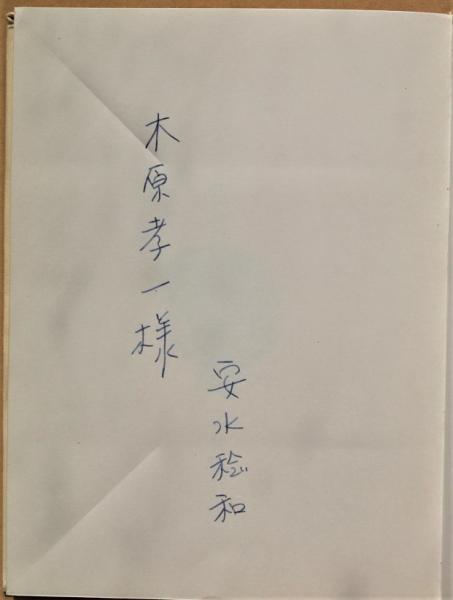 木原孝一様
安水稔和